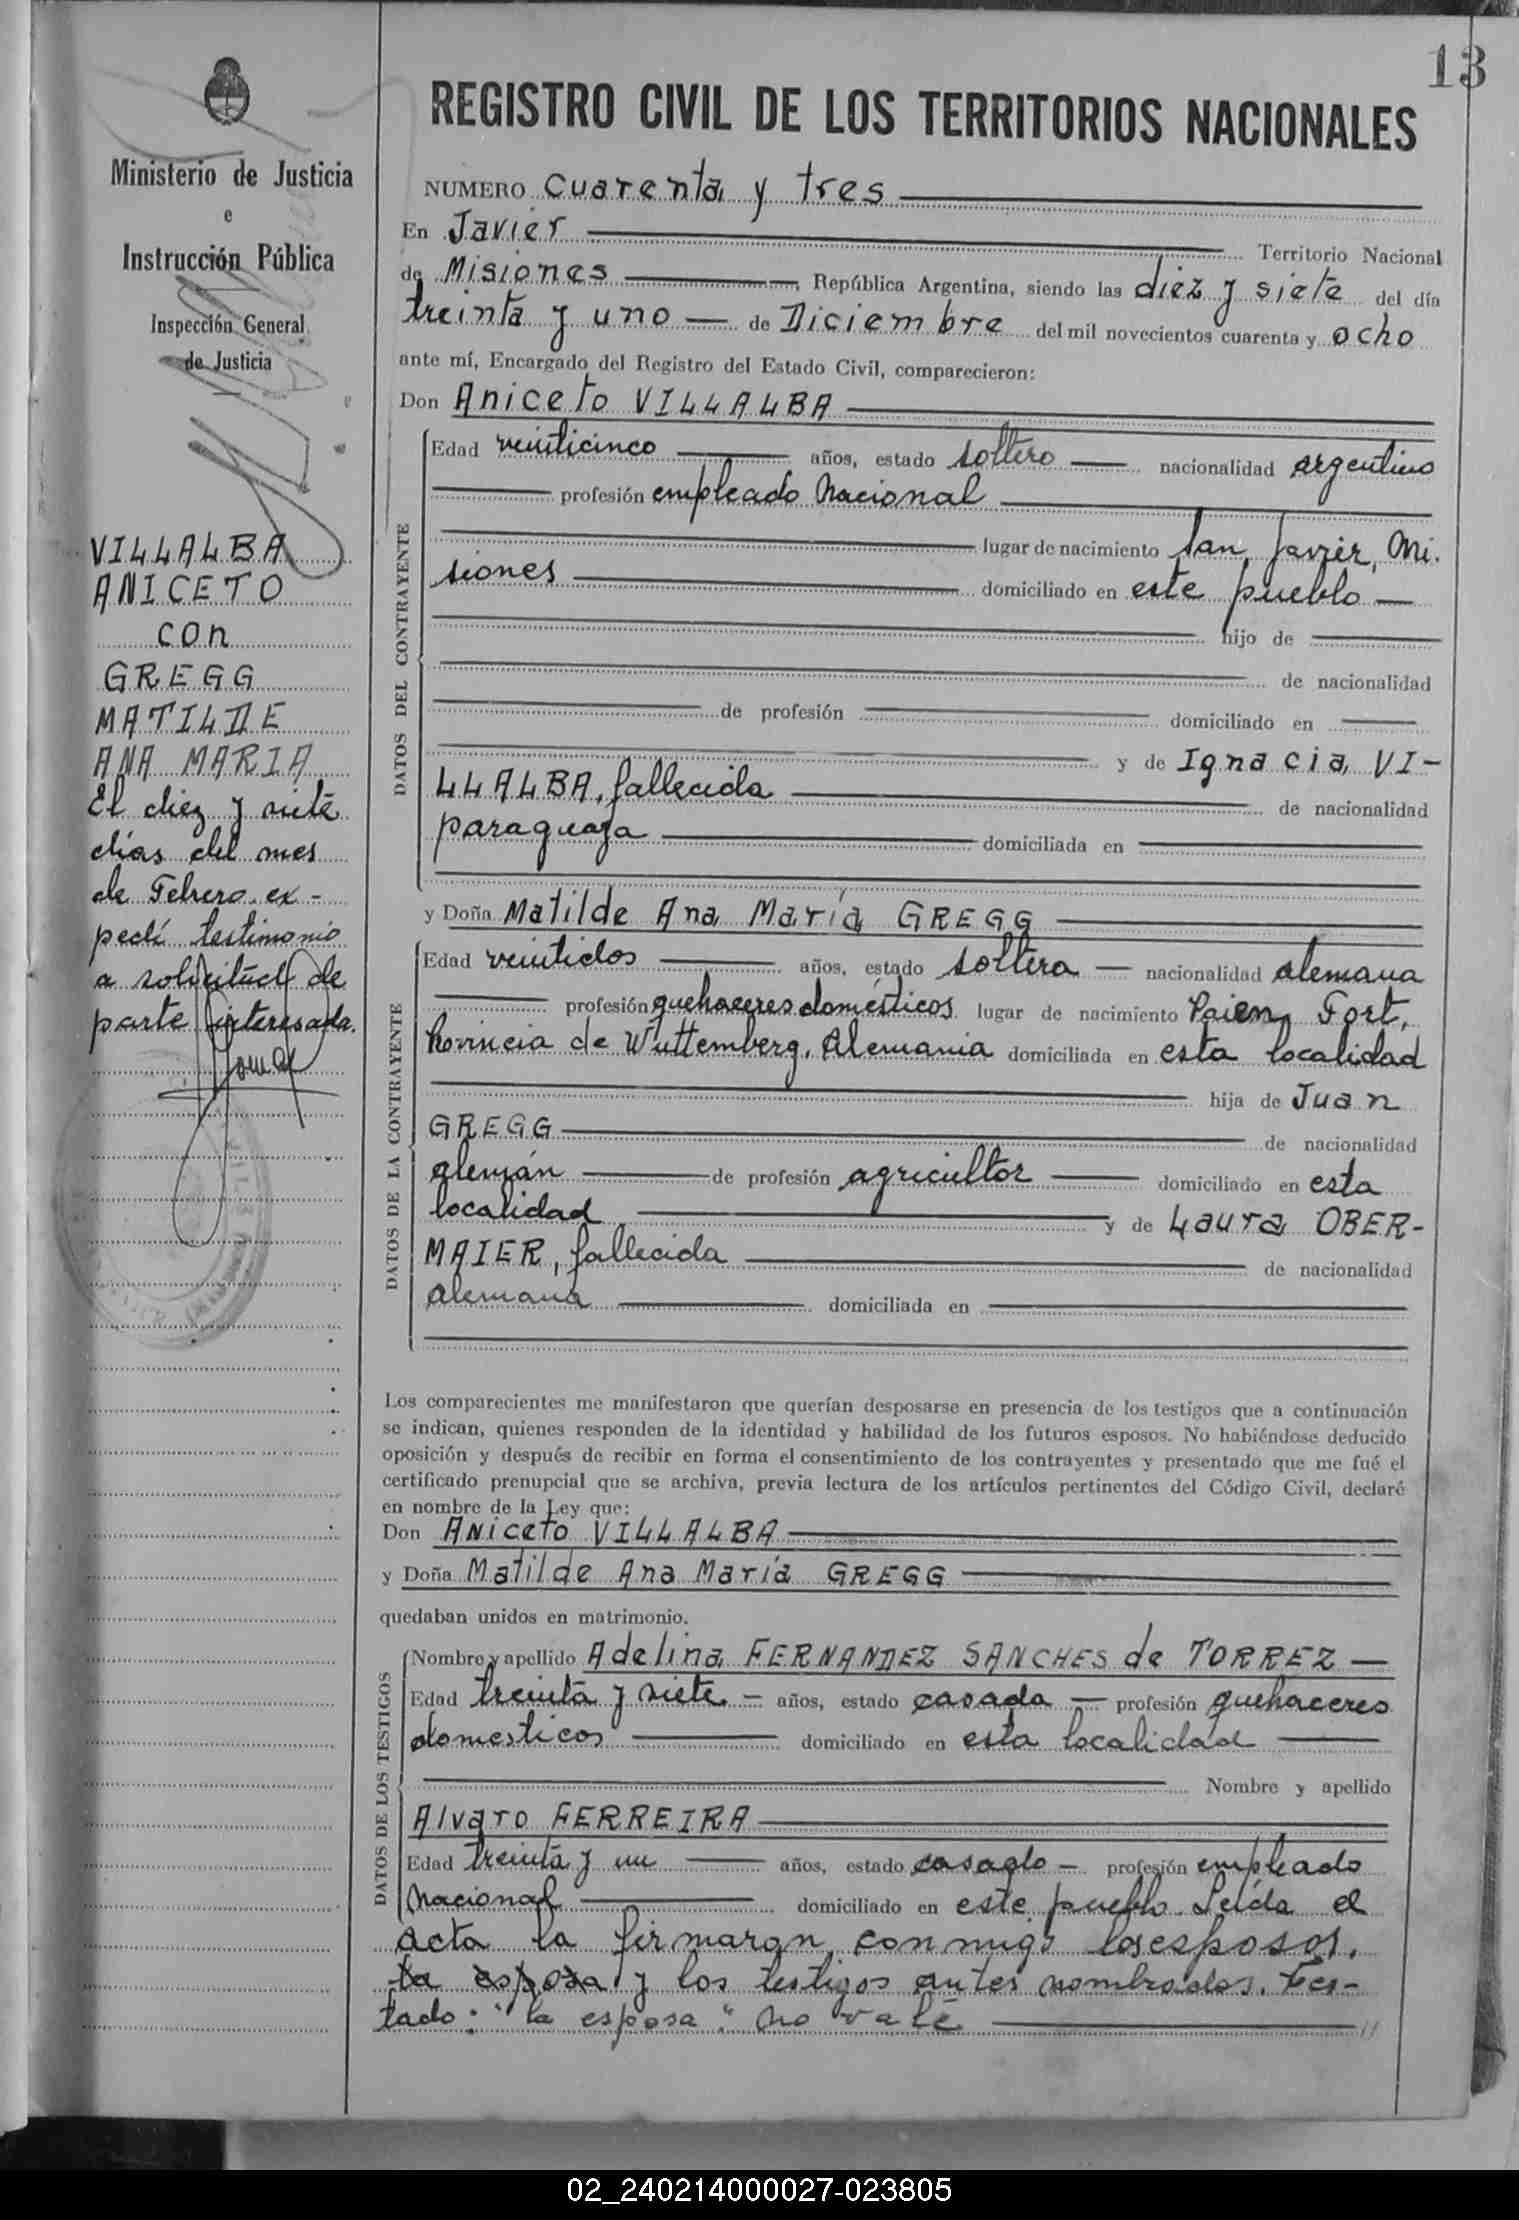 13
REGISTRO CIVIL DE LOS TERRITORIOS NACIONALES
Ministerio de Justicia
e
Instrucción Pública
Inspección General
de Justicia
VILLALBA
ANICETO
con
GREGG
MATILDE
ANA MARIA
El diez y siete
días del mes
de Febrero ex-
pedí testimonio
a solicitud de
parte interesada.
NUMERO cuarenta y tres
En Javier Territorio Nacional
de Misiones, República Argentina, siendo las diez y siete del día
treinta y uno de Diciembre del mil novecientos cuarenta y ocho
ante mí, Encargado del Registro del Estado Civil, comparecieron:
Don Aniceto VILLALBA
DATOS DEL CONTRAYENTE
Edad veinticinco años, estado soltero nacionalidad argentino
profesión empleado Nacional
lugar de nacimiento San Javier, Mi.
siones domiciliado en este pueblo
hijo de
de nacionalidad
de profesión domiciliado en
y de Ignacia VI-
LLALBA, fallecida de nacionalidad
paraguaya domiciliada en
y Doña Matilde Ana María GREGG
DATOS DE LA CONTRAYENTE
Edad veintidos años, estado soltera nacionalidad alemana
profesión quehaceres domésticos lugar de nacimiento Paien Fort,
Provincia de Wuttemberg, Alemania domiciliada en esta localidad
hija de Juan
GREGG de nacionalidad
alemán de profesión agricultor domiciliado en esta
localidad y de Laura OBER-
MAIER, fallecida de nacionalidad
alemana domiciliada en
Los comparecientes me manifestaron que querían desposarse en presencia de los testigos que a continuación
se indican, quienes responden de la identidad y habilidad de los futuros esposos. No habiéndose deducido
oposición y después de recibir en forma el consentimiento de los contrayentes y presentado que me fué el
certificado prenupcial que se archiva, previa lectura de los artículos pertinentes del Código Civil, declaré
en nombre de la Ley que:
Don Aniceto VILLALBA
y Doña Matilde Ana María GREGG
quedaban unidos en matrimonio.
DATOS DE LOS TESTIGOS
Nombre y apellido Adelina FERNANDEZ SANCHES de TORREZ
Edad treinta y siete años, estado casada profesión quehaceres
domesticos domiciliado en esta localidad
Nombre y apellido
Alvaro FERREIRA
Edad treinta y un años, estado casado profesión empleado
Nacional domiciliado en este pueblo. Leída el
acta la firmaron conmigo los esposos.
la esposa y los testigos antes nombrados. Tes-
tado: "la esposa" no vale
02_240214000027-023805